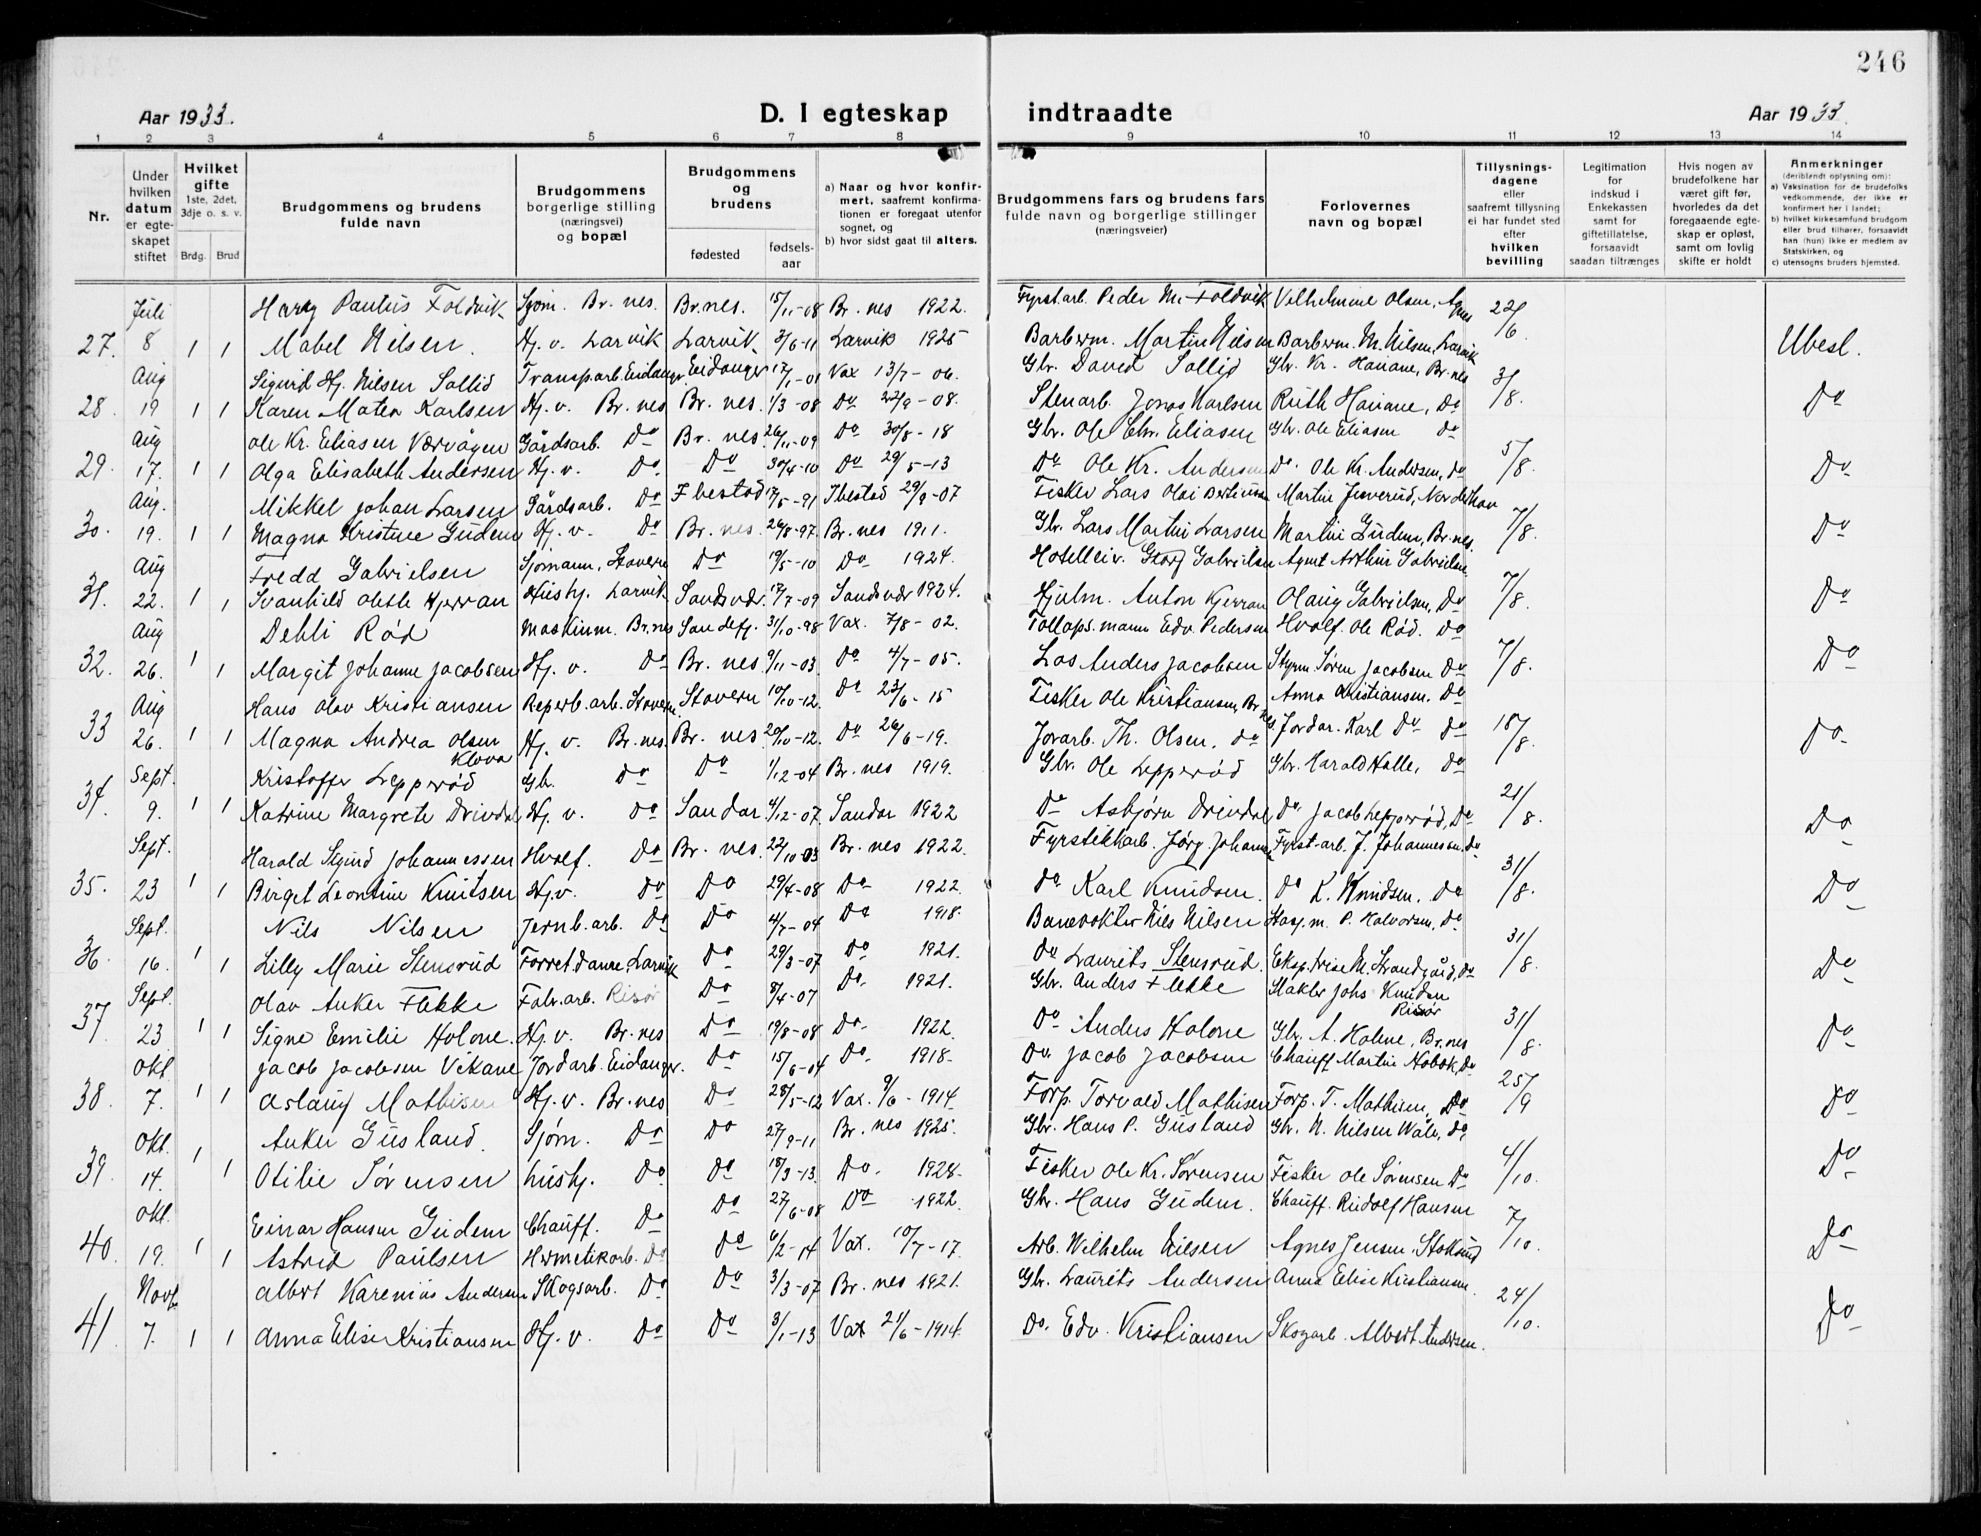 246
Aar 1933. D. I egteskap indtraadte Aar 1933.
1 2 3 4 5 6 7 8 9 10 11 12 13 14
Nr.
Under hvilken datum er egteskapet stiftet
Hvilket gifte 1ste, 2det, 3dje o. s. v. Brdg. Brud
Brudgommens og brudens fulde navn
Brudgommens borgerlige stilling (næringsvei) og bopæl
Brudgommens og brudens fødested fødselsaar
a) Naar og hvor konfirmert, saafremt konfirmationen er foregaat utenfor sognet, og
b) hvor sidst gaat til alters.
Brudgommens fars og brudens fars fulde navn og borgerlige stillinger (næringsveier)
Forlovernes navn og bopæl
Tillysningsdagene eller saafremt tillysning ei har fundet sted efter hvilken bevilling
Legitimation for indskud i Enkekassen samt for giftetillatelse, forsaavidt saadan tiltrænges
Hvis nogen av brudefolkene har været gift før, hvorledes da det foregaaende egteskap er opløst, samt om lovlig skifte er holdt
Anmerkninger (deriblandt oplysning om):
a) Vaksination for de brudefolks vedkommende, der ikke er konfirmert her i landet;
b) hvilket kirkesamfund brudgom eller brud tilhører, forsaavidt han (hun) ikke er medlem av Statskirken, og
c) utensogns bruders hjemsted.
Juli Harry Paulus Foldvik Sjøm. Br.nes. Br.nes. 15/11-08 Br.nes 1922. Fyrst.arb. Peder M. Foldvik Vilhelmine Olsen, Agnes 22/6
27. 8 1 1 Mabel Nilsen. Hj. v. Larvik Larvik 3/6-11 Larvik 1925 Barberm. Martin Nilsen Barberm. M. Nilsen, Larvik Ubesl.
Aug Sigurd Hj. Nilsen Sollid Transp.arb. Eidanger Eidanger 17/1-01 Vax 13/7-06. Gbr. David Sollid Gbr. Kr. Haviane, Br.nes 3/8.
28. 19 1 1 Karen Matea Karlsen Hj. v. Br.nes Br.nes. 1/3-08 Do 22/9-08. Stenarb. Jonas Karlsen Ruth Haviane, Do Do
Aug Ole Kr. Eliasen Værvågen Gårdsarb. Do Br.nes. 26/11-09 Do 30/8-18 Gbr. Ole Chr. Eliasen Gbr. Ole Eliasen Do 5/8.
29. 17. 1 1 Olga Elisabeth Andersen Hj. v. Do. Do 30/4-10 Do 29/5-13 Do Ole Kr. Andersen Do. Ole Kr. Andersen, Do Do
Aug. Mikkel Johan Larsen Gårdsarb. Do Ibestad 17/5-91 Ibestad 29/9-07 Fisker Lars Olai Bertiussen Martin Norderhov 7/8.
30. 19. 1 1 Magna Kristine Gudem Hj. v. Do Br.nes. 26/8-97. Br.nes 1911. Gbr. Lars Martin Larsen Martin Gudem, Br.nes. Do
Aug Fredd Gabrielsen Sjømann, Stavern Do 19/5-10 Do 1924. Hotelleier Georg Gabrielsen Agent Arthur Gabrielsen 7/8.
31. 22. 1 1 Svanhild Olette Hjerran Hushj. Larvik Sandsvær. 17/7-09 Sandsvær 1924. Hjulm. Anton Kjerran Olaug Gabrielsen, Do Do
Aug Dehli Rød Maskinm. Br.nes Sandefj. 31/10-98 Vax. 7/8-02. Tollops.mann Edv. Pedersen Hvalf. Ole Rød. Do 7/8.
32. 26. 1 1 Margit Johanne Jacobsen Hj. v. Do Br.nes 9/11-03. Do 4/7-05. Los Anders Jacobsen Styrm. Søren Jacobsen Do Do
Aug Hans Olav Kristiansen Reperb.arb. Stavern. Stavern 10/10-12. Do 23/6-15 Fisker Ole Kristiansen, Br.nes Anna Kristiansen. Do 18/8.
33 26. 1 1 Magna Andrea Olsen Klova Hj. v. Br.nes. Br.nes 20/10-12. Do 26/6-19. Jorarb. Th. Olsen. Do Jordar. Karl Do Do Do
Sept. Kristoffer Lepperød Gbr. Do Do 1/12-04 Br.nes 1919. Gbr. Ole Lepperød Gbr. Harald Halle, Do 21/8.
34. 9. 1 1 Katrine Margrete Drivdal Hj. v. Do Sandar 4/12-07. Sandar 1922 Do Asbjørn Drivdal Do Jacob Lepperød, Do Do
Sept. Harald Sigurd Johannessen Hvalf. Do Br.nes. 22/10-03 Br.nes 1922. Fyrstikkarb. Jørg. Johannes Fyrst-arb. J. Johannessen. Do 31/8.
35. 23 1 1 Birgit Leontine Knutsen Hj.v. Do Do 29/4-08 Do 1922. Do Karl Knudsen. Do K. Knudsen. Do Do
Sept. Nils Nilsen Jernb.arb. Do Do 4/7-04 Do 1918. Banevokter Nils Nilsen P. Halvorsen, Do 31/8.
36 16. 1 1 Lilly Marie Stensrud Forret.danne, Larvik Do 29/3-07 Do 1921. Do Laurits Stensrud. Eksp.trise M. Strandgård, Do Do
Sept. Olav Anker Flekke Fabr.arb. Risør Do 8/4-07 Do. 1921. Gbr. Anders Flekke Makler Johs Knudsen Risør 31/8.
37 23 1 1 Signe Emilie Holone. Hj. v. Br.nes Do 19/8-08 Do. 1922. Do Anders Holone Gbr. A. Holone, Br.nes Do
Okt. Jacob Jacobsen Vikane Jordarb. Eidanger. Do 15/6-04 Do. 1918. Do. Jacob Jacobsen Chauff Martin Do 25/9
38. 7. 1 1 Aslaug Mathisen Hj. v. Br.nes Do 28/5-12 Vax. 9/6-1914. Forp. Torvald Mathisen Forp. T. Mathisen, Do Do
Okt. Anker Gusland. Sjøm. Do Do 27/9-11 Br.nes 1925. Gbr. Hans P. Gusland Gbr. N. Nilsen Do. 4/10.
39. 14. 1 1 Otilie Sørensen Hushj. Do Do 18/3-13. Do. 1928. Fisker Ole Kr. Sørensen Fisker Ole Sørensen Do Do
Okt. Einar Hansen Gudem Chauff. Do Do 27/6-08 Do 1922. Gbr. Hans Gudem. Chauff. Rudolf Hansen 7/10.
40. 19. 1 1 Astrid Paulsen Hermetikarb. Do Do 6/2-14 Vax. 10/7-17. Arb. Wilhelm Nilsen Agnes Jensen, Do
Novb. Albert Karenius Andersen Skogsarb. Do Do 3/3-07 Br.nes 1921. Gbr. Laurits Andersen Anna Elise Kristiansen. 24/10.
41 7. 1 1 Anna Elise Kristiansen Hj. v. Do Do 3/1-13 Vax 21/6-1914. Do. Edv. Kristiansen Skogarb. Albert Andersen. Do